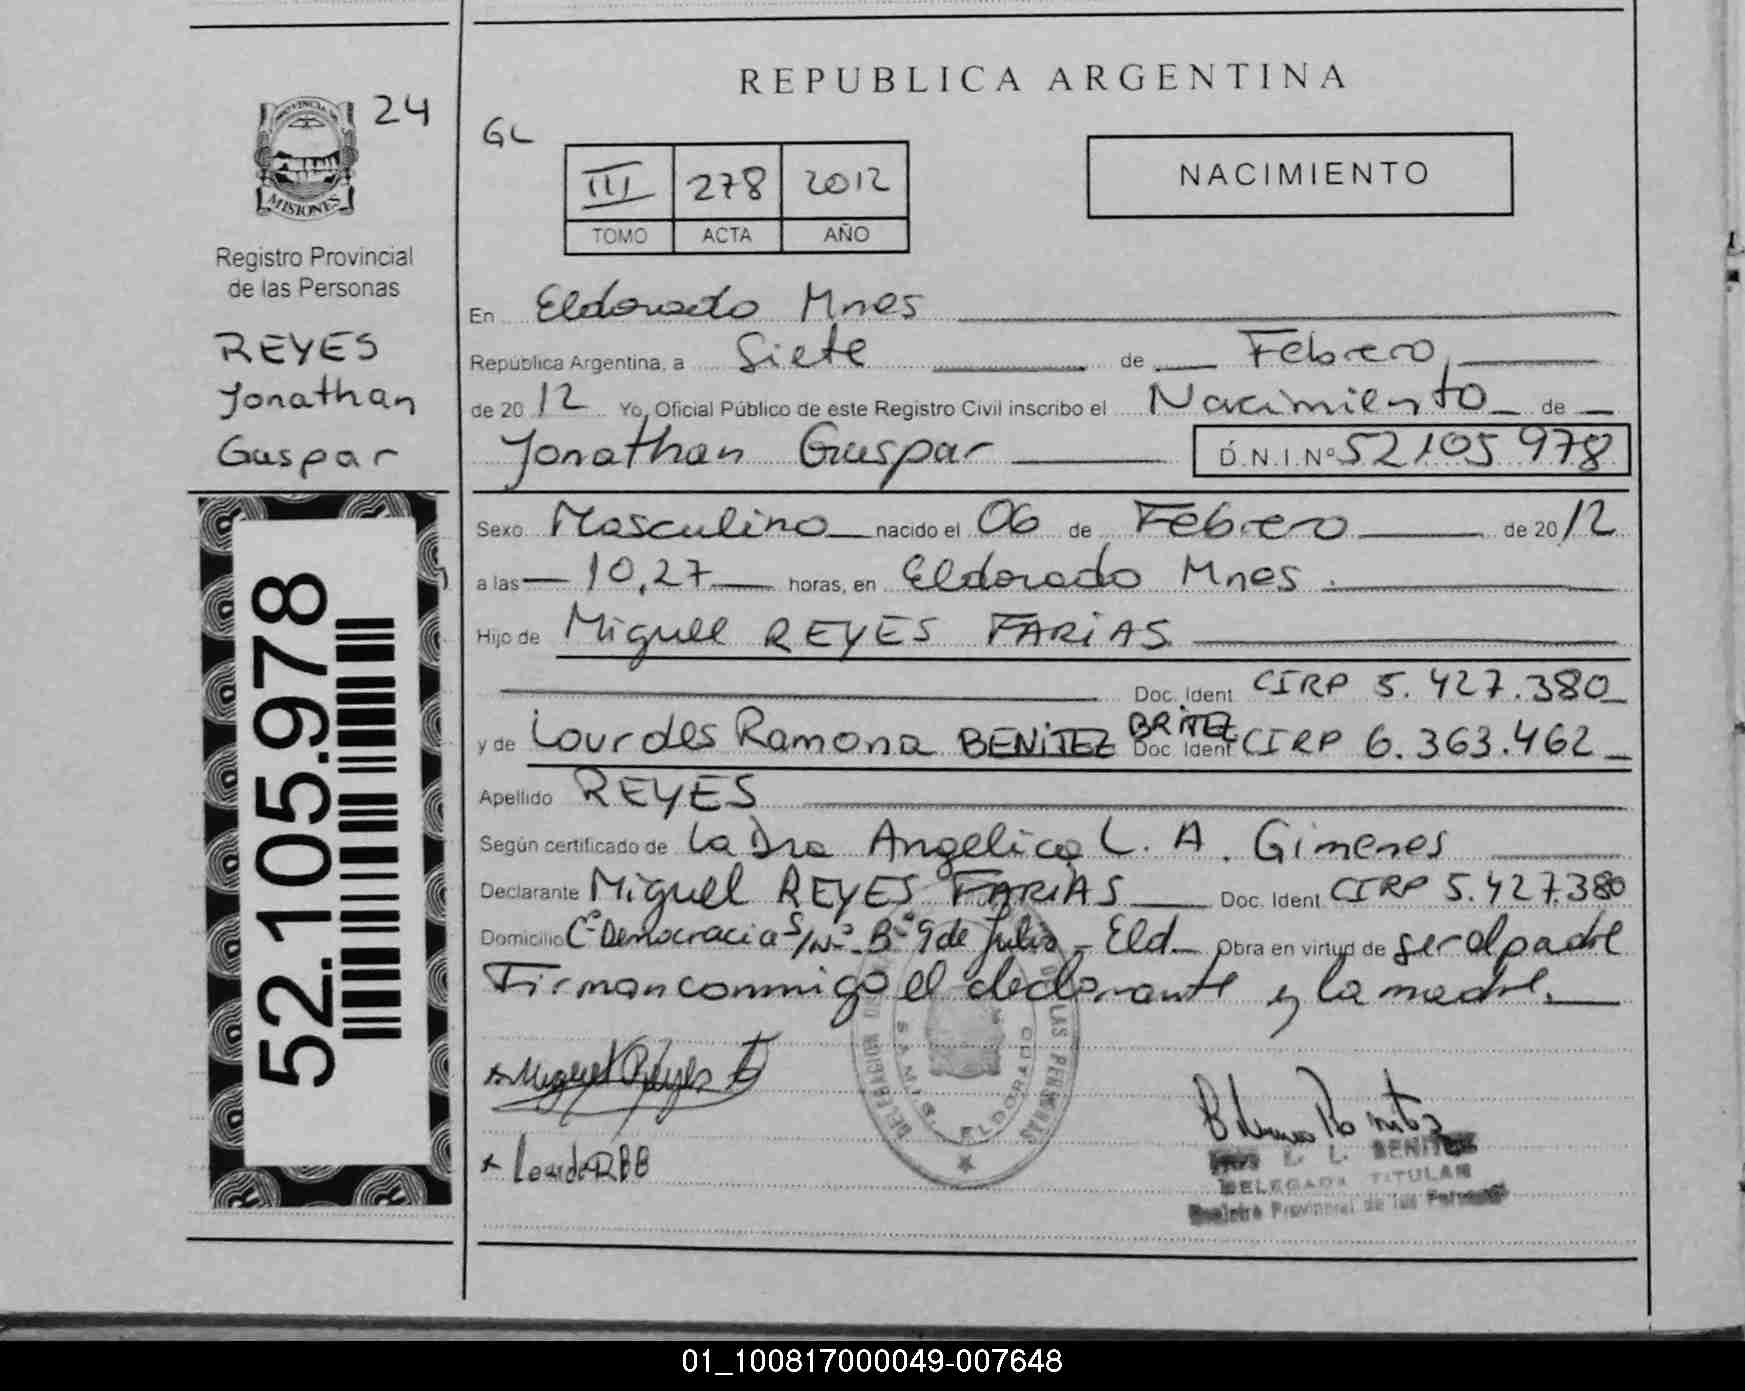 REPUBLICA ARGENTINA
PROVINCIA DE
MISIONES
24
Registro Provincial
de las Personas
REYES
Jonathan
Gaspar
52.105.978
GL
III 278 2012
TOMO ACTA AÑO
NACIMIENTO
En Eldorado Mnes
República Argentina, a Siete de Febrero
de 20 12 Yo, Oficial Público de este Registro Civil inscribo el Nacimiento de
Jonathan Gaspar D.N.I.Nº 52105978
Sexo Masculino nacido el 06 de Febrero de 20 12
a las 10,27 horas, en Eldorado Mnes.
Hijo de Miguel REYES FARIAS
Doc. Ident CIRP 5.427.380
y de Lourdes Ramona BENITEZ BRITEZ Doc. Ident CIRP 6.363.462
Apellido REYES
Según certificado de La Dra Angelica L. A. Gimenes
Declarante Miguel REYES FARIAS Doc. Ident CIRP 5.427.380
Domicilio Cº Democracia S/Nº Bº 9 de Julio - Eld. Obra en virtud de ser el padre
Firman conmigo el declarante y la madre.
Miguel Reyes F
DE LAS PERSONAS
ELDORADO
L. L. BENITEZ
DELEGADA TITULAR
Registro Provincial de las Personas
01_100817000049-007648